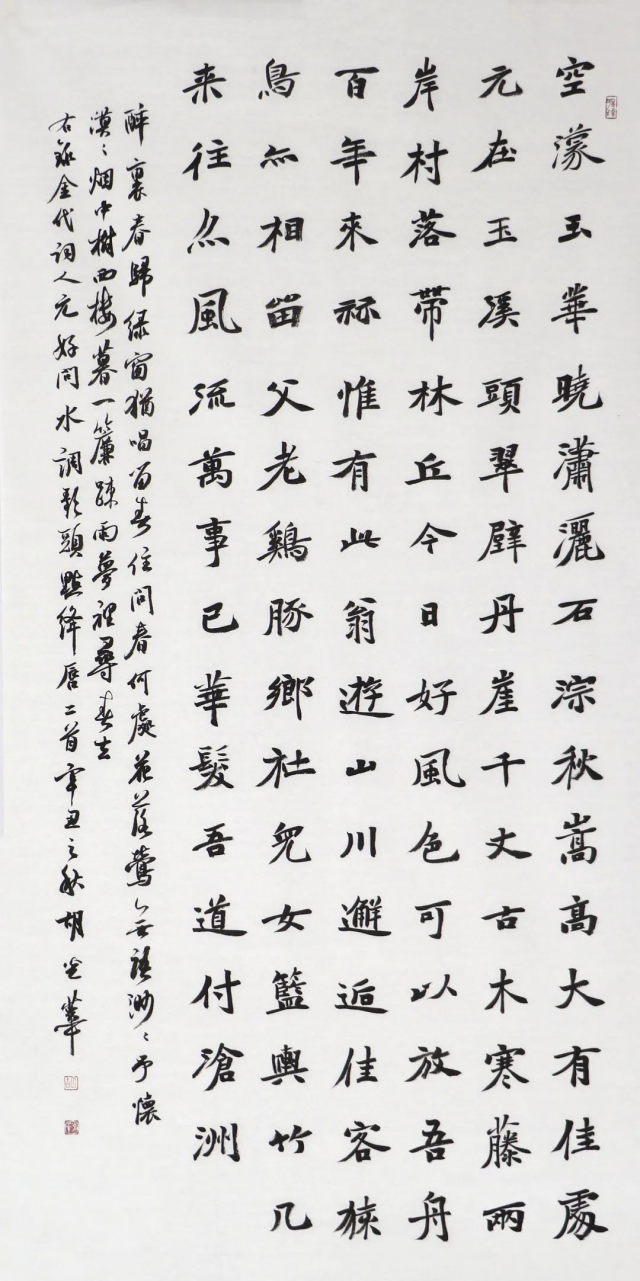 空濛玉華曉瀟灑石淙秋嵩高大有佳處
元在玉溪頭翠壁丹崖千丈古木寒藤兩
岸村落帶林丘今日好風色可以放吾舟
百年來祘惟有此翁遊山川邂逅佳客猿
鳥亦相畱父老鷄豚鄉社兒女籃輿竹几
来往亦風流萬事已華髮吾道付滄洲
醉裏春歸緑窗猶唱留春住問春何處花落鶯無語渺〻予懷
漠〻烟中樹西樓暮一簾疎雨夢裡尋春去
右錄金代词人元好问水調歌頭點絳唇二首辛丑之秋胡光華